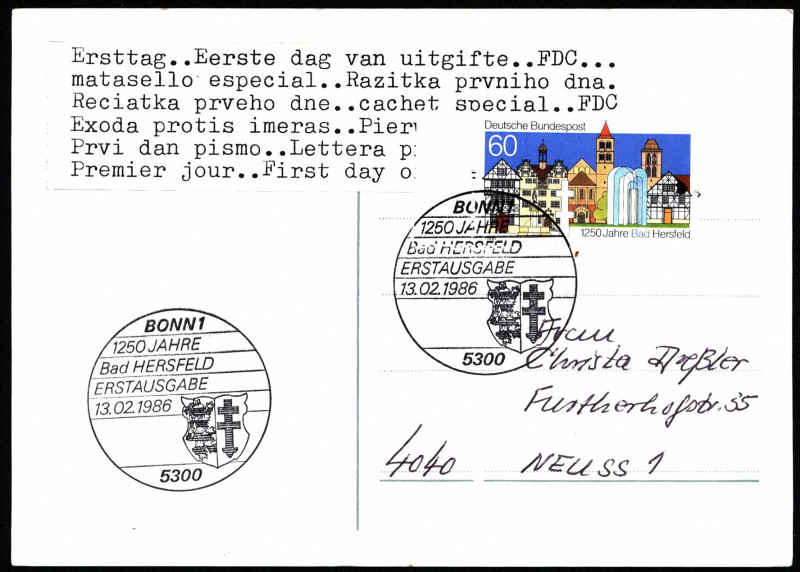 Ersttag..Eerste dag van uitgifte..FDC...
matasello especial..Razitka prvniho dna.
Reciatka prveho dne..cachet special..FDC
Exoda protis imeras..Pier
Prvi dan pismo..Lettera p
Premier jour..First day o
Deutsche Bundespost
60
1250 Jahre Bad Hersfeld
BONN 1
1250 JAHRE
Bad HERSFELD
ERSTAUSGABE
13.02.1986
5300
BONN 1
1250 JAHRE
Bad HERSFELD
ERSTAUSGABE
13.02.1986
5300
Frau
Christa Dreßler
Furtherhofstr. 35
4040 NEUSS 1